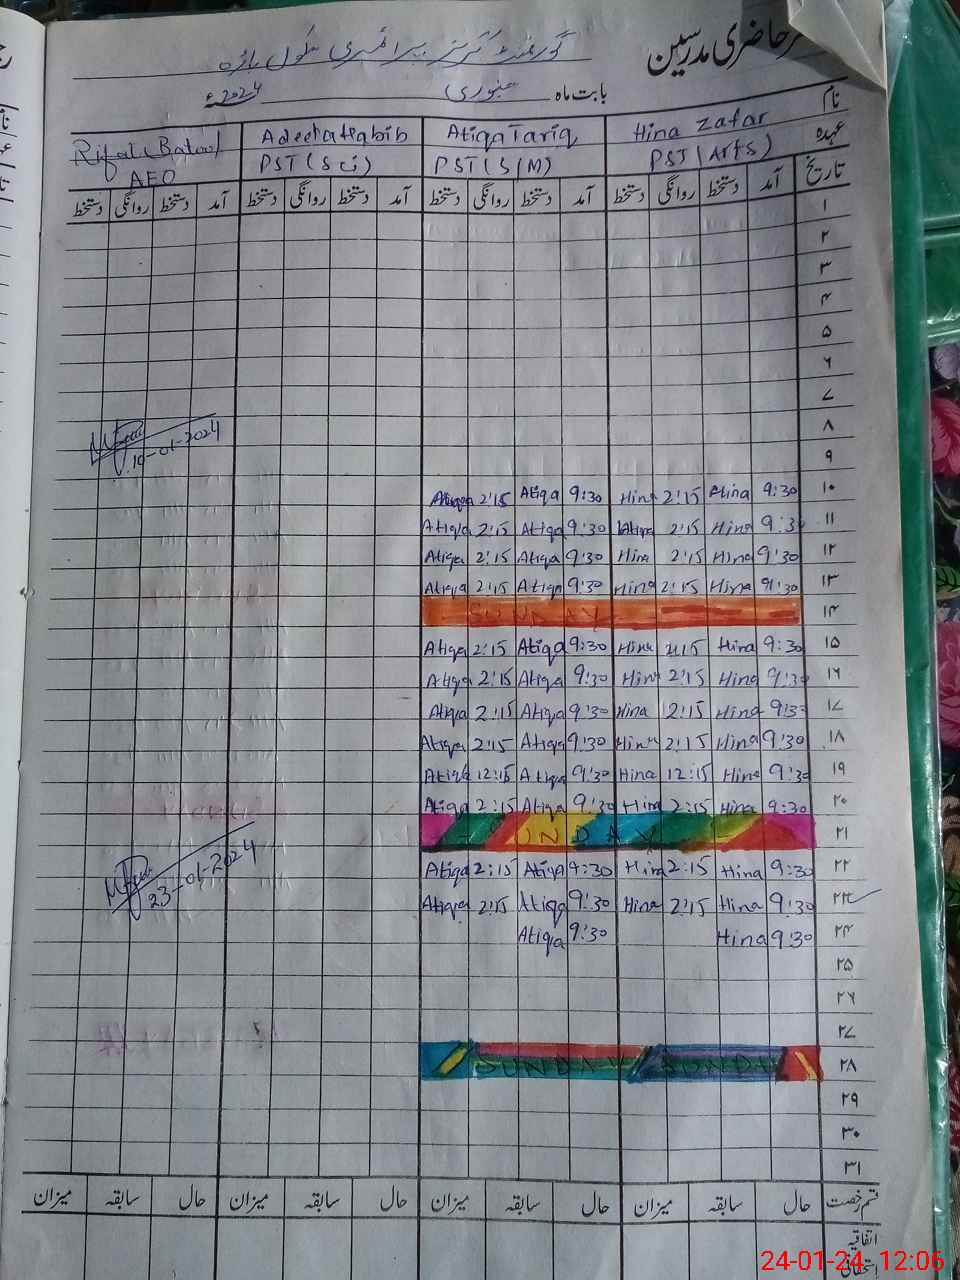 حاضری مدرسین
گورنمنٹ گرلز پرائمری سکول باڑہ
بابت ماہ جنوری 2024ء
نام Hina Zafar Atiqa Tariq Adeeha Habib Rifat Batool
عہدہ PST (Arts) PST (S/M) PST (Sci) AEO
تاریخ آمد دستخط روانگی دستخط آمد دستخط روانگی دستخط آمد دستخط روانگی دستخط آمد دستخط روانگی دستخط
۱
۲
۳
۴
۵
۶
۷
۸
۹
10-01-2024
۱۰ 9:30 Hina 2:15 Hina 9:30 Atiqa 2:15 Atiqa
۱۱ 9:30 Hina 2:15 9:30 Atiqa 2:15 Atiqa
۱۲ 9:30 Hina 2:15 Hina 9:30 Atiqa 2:15 Atiqa
۱۳ 9:30 Hina 2:15 Hina 9:30 Atiqa 2:15 Atiqa
۱۴ SUNDAY
۱۵ 9:30 Hina 2:15 Hina 9:30 Atiqa 2:15 Atiqa
۱۶ 9:30 Hina 2:15 Hina 9:30 Atiqa 2:15 Atiqa
۱۷ 9:30 Hina 2:15 Hina 9:30 Atiqa 2:15 Atiqa
۱۸ 9:30 Hina 2:15 Hina 9:30 Atiqa 2:15 Atiqa
۱۹ 9:30 Hina 12:15 Hina 9:30 Atiqa 12:15 Atiqa
۲۰ 9:30 Hina 2:15 Hina 9:30 Atiqa 2:15 Atiqa
۲۱ SUNDAY
۲۲ 9:30 Hina 2:15 Hina 9:30 Atiqa 2:15 Atiqa
23-01-2024
۲۳ 9:30 Hina 2:15 Hina 9:30 Atiqa 2:15 Atiqa
۲۴ 9:30 Hina 9:30 Atiqa
۲۵
۲۶
۲۷
۲۸ SUNDAY SUNDAY
۲۹
۳۰
۳۱
قسم رخصت حال سابقہ میزان حال سابقہ میزان حال سابقہ میزان حال سابقہ میزان
اتفاقیہ
استحقاقی
24-01-24 12:06